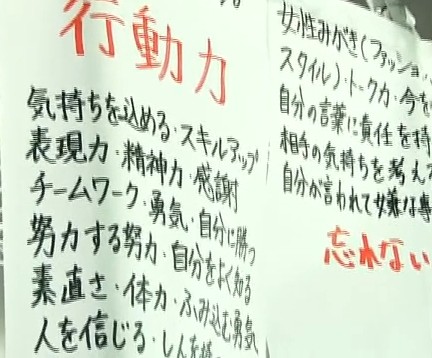 行動力
気持ちを込める・スキルアップ
表現力・精神力・感謝
チームワーク・勇気・自分に勝つ
努力する努力・自分をよく知る
素直さ・体力・ふみ込む勇気
人を信じる・しんを持
女性みがき(ファッション
スタイル)・トーク力・今を
自分の言葉に責任を持
相手の気持ちを考えて
自分が言われて嫌な事
忘れない